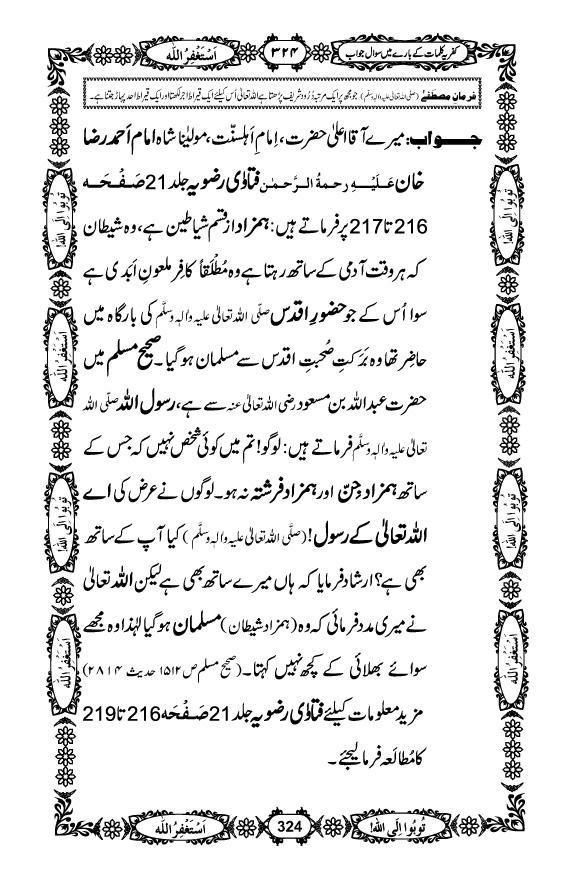 کفریہ کلمات کے بارے میں سوال جواب ۳۲۴ اَسْتَغْفِرُ اللّٰه
فرمانِ مصطَفٰے (صلی اللہ تعالیٰ علیہ واٰلہٖ وسلّم) جو مجھ پر ایک مرتبہ دُرُود شریف پڑھتا ہے اللہ تعالیٰ اُس کیلئے ایک قیراط اجر لکھتا اور ایک قیراط اُحد پہاڑ جتنا ہے۔
جواب: میرے آقا اعلیٰ حضرت، اِمامِ اَہلسنّت، مولیٰنا شاہ امام اَحمد رضا
خان عَلَیْہِ رحمۃُ الرَّحمٰن فتاوٰی رضویہ جلد 21 صَفْحَہ
216 تا 217 پر فرماتے ہیں: ہمزاد از قسمِ شیاطین ہے، وہ شیطان
کہ ہر وقت آدمی کے ساتھ رہتا ہے وہ مُطْلَقاً کافِر ملعونِ اَبَدی ہے
سوا اُس کے جو حضورِ اقدس صلَّی اللہ تعالیٰ علیہ واٰلہٖ وسلَّم کی بارگاہ میں
حاضِر تھا وہ بَرَکتِ صُحبتِ اقدس سے مسلمان ہو گیا۔ صحیح مسلم میں
حضرت عبداللہ بن مسعود رضی اللہ تعالیٰ عنہ سے ہے، رسول اللہ صلَّی اللہ
تعالیٰ علیہ واٰلہٖ وسلَّم فرماتے ہیں: لوگو! تم میں کوئی شخص نہیں کہ جس کے
ساتھ ہمزاد جِنّ اور ہمزاد فرشتہ نہ ہو۔ لوگوں نے عرض کی اے
اللہ تعالیٰ کے رسول! (صلَّی اللہ تعالیٰ علیہ واٰلہٖ وسلَّم) کیا آپ کے ساتھ
بھی ہے؟ ارشاد فرمایا کہ ہاں میرے ساتھ بھی ہے لیکن اللہ تعالیٰ
نے میری مدد فرمائی کہ وہ (ہمزاد شیطان) مسلمان ہو گیا لہٰذا وہ مجھے
سوائے بھلائی کے کچھ نہیں کہتا۔ (صحیح مسلم ص ۱۵۱۲ حدیث ۲۸۱۴)
مزید معلومات کیلئے فتاوٰی رضویہ جلد 21 صَفْحَہ 216 تا 219
کا مُطالَعہ فرما لیجئے۔
تُوبُوا اِلَی اللّٰه! 324 اَسْتَغْفِرُ اللّٰه
تُوبُوا اِلَی اللّٰه!
اَسْتَغْفِرُ اللّٰه
تُوبُوا اِلَی اللّٰه!
اَسْتَغْفِرُ اللّٰه
تُوبُوا اِلَی اللّٰه!
اَسْتَغْفِرُ اللّٰه
تُوبُوا اِلَی اللّٰه!
اَسْتَغْفِرُ اللّٰه